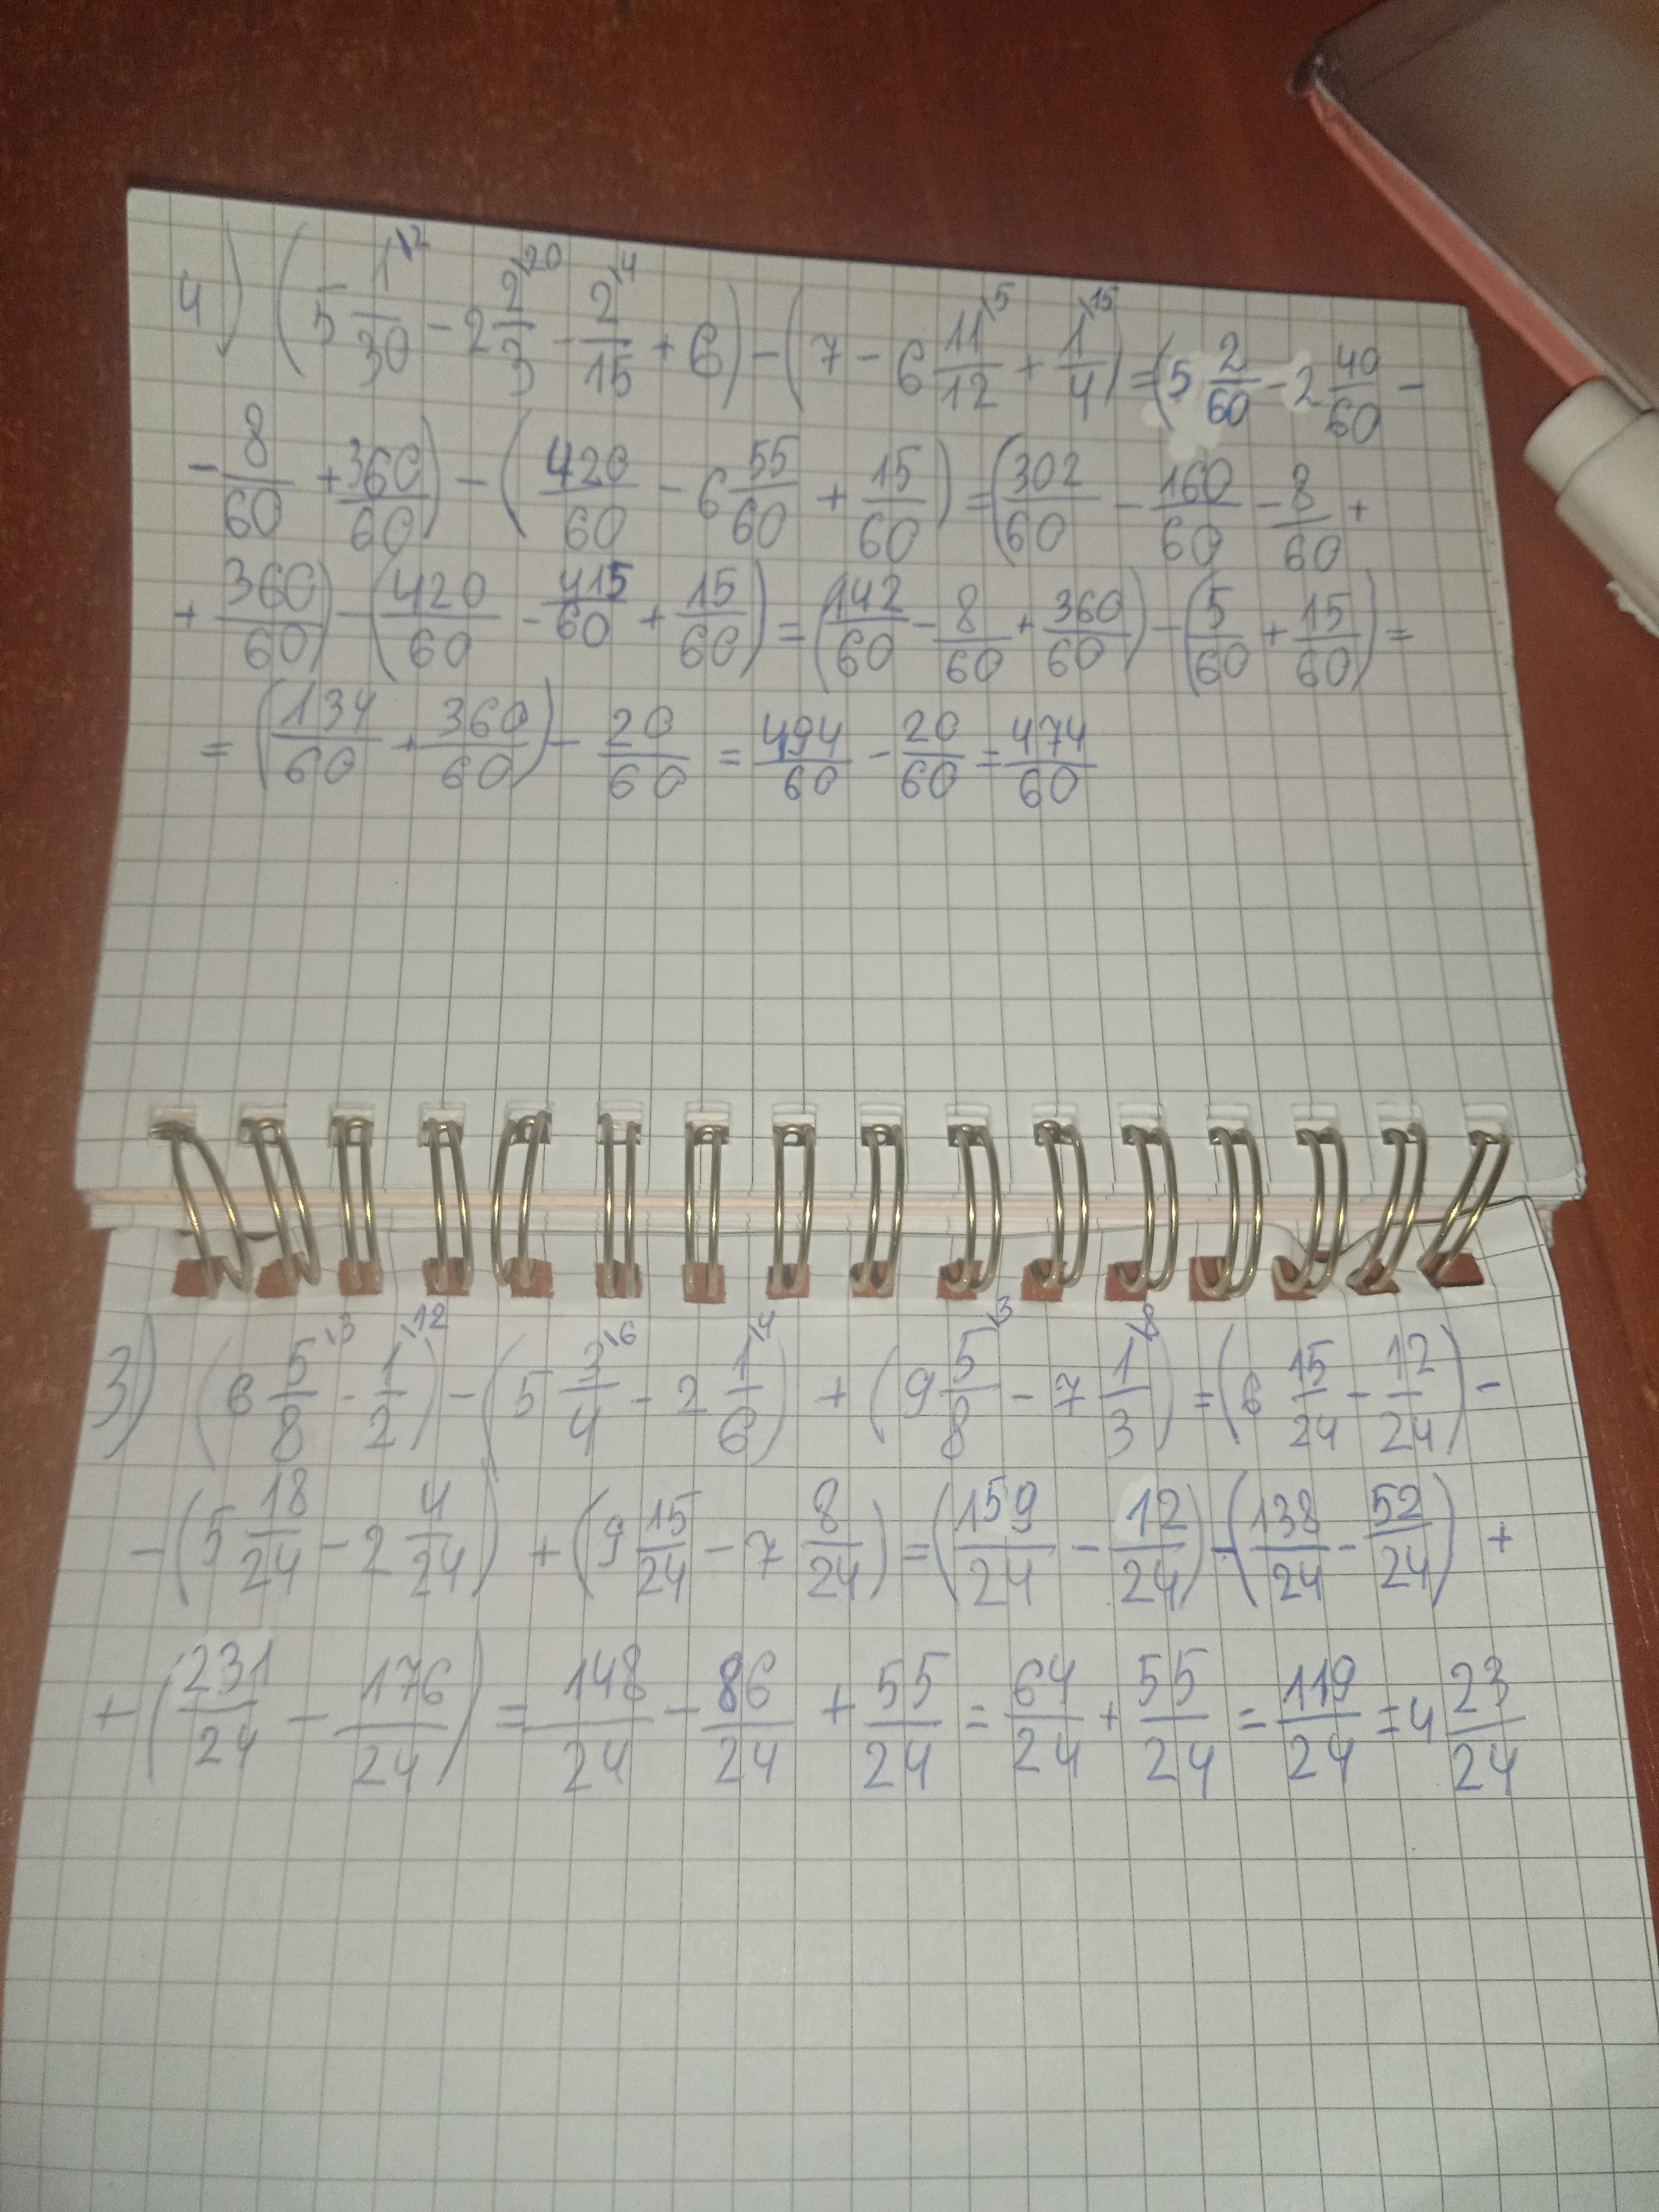 4) (5 1/30 \2 - 2 2/3 \20 - 2/15 \4 + 6) - (7 - 6 11/12 \5 + 1/4 \15) = (5 2/60 - 2 40/60 -
- 8/60 + 360/60) - (420/60 - 6 55/60 + 15/60) = (302/60 - 160/60 - 8/60 +
+ 360/60) - (420/60 - 415/60 + 15/60) = (142/60 - 8/60 + 360/60) - (5/60 + 15/60) =
= (134/60 + 360/60) - 20/60 = 494/60 - 20/60 = 474/60
3) (6 5/8 \3 - 1/2 \12) - (5 3/4 \6 - 2 1/6 \4) + (9 5/8 \3 - 7 1/3 \8) = (6 15/24 - 12/24) -
- (5 18/24 - 2 4/24) + (9 15/24 - 7 8/24) = (159/24 - 12/24) - (138/24 - 52/24) +
+ (231/24 - 176/24) = 148/24 - 86/24 + 55/24 = 64/24 + 55/24 = 119/24 = 4 23/24